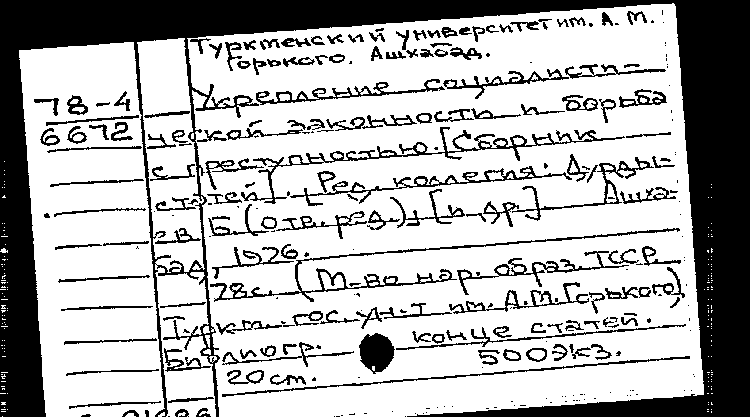 Туркменский университет им. А. М.
Горького. Ашхабад.
78-4 Укрепление социалисти-
6672 ческой законности и борьба
с преступностью. [Сборник
статей]. [Ред. коллегия: Дурды-
ев Б. (отв. ред.), [и др]. Ашха-
бад, 1976.
78с. (М-во нар. образ. ТССР
Туркм. гос. ун-т им. А.М.Горького)
Библиогр. конце статей.
20см. 500экз.